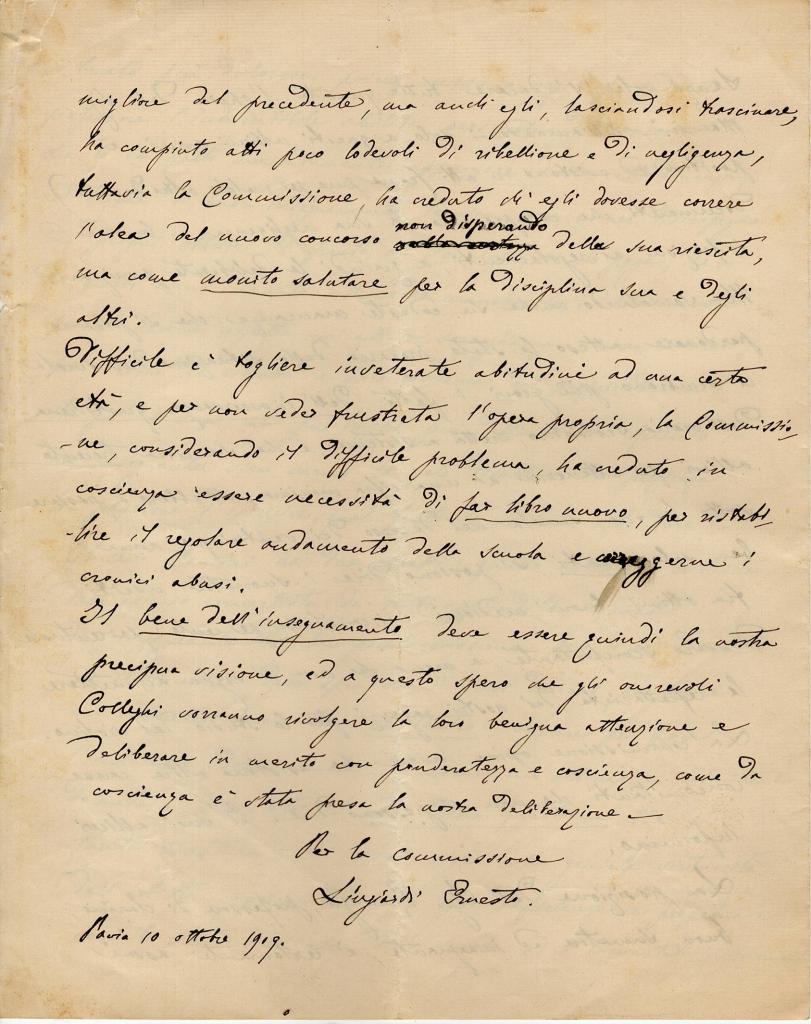 migliore del precedente, ma anch'egli, lasciandosi trascinare,
ha compiuto atti poco lodevoli di ribellione e di negligenza,
tuttavia la Commissione, ha creduto ch'egli dovesse correre
l'alea del nuovo concorso non disperando della sua riescita,
ma come monito salutare per la disciplina sua e degli
altri.
Difficile è togliere inveterate abitudini ad una certa
età, e per non veder frustrata l'opera propria, la Commissio-
-ne, considerando il difficile problema, ha creduto in
coscienza essere necessità di far libro nuovo, per ristabi-
-lire il regolare andamento della scuola e correggerne i
cronici abusi.
Il bene dell'insegnamento deve essere quindi la nostra
precipua visione, ed a questo spero che gli onorevoli
Colleghi vorranno rivolgere la loro benigna attenzione e
deliberare in merito con ponderatezza e coscienza, come da
coscienza è stata presa la nostra deliberazione.
Per la commissione
Lingiardi Ernesto.
Pavia 10 ottobre 1909.